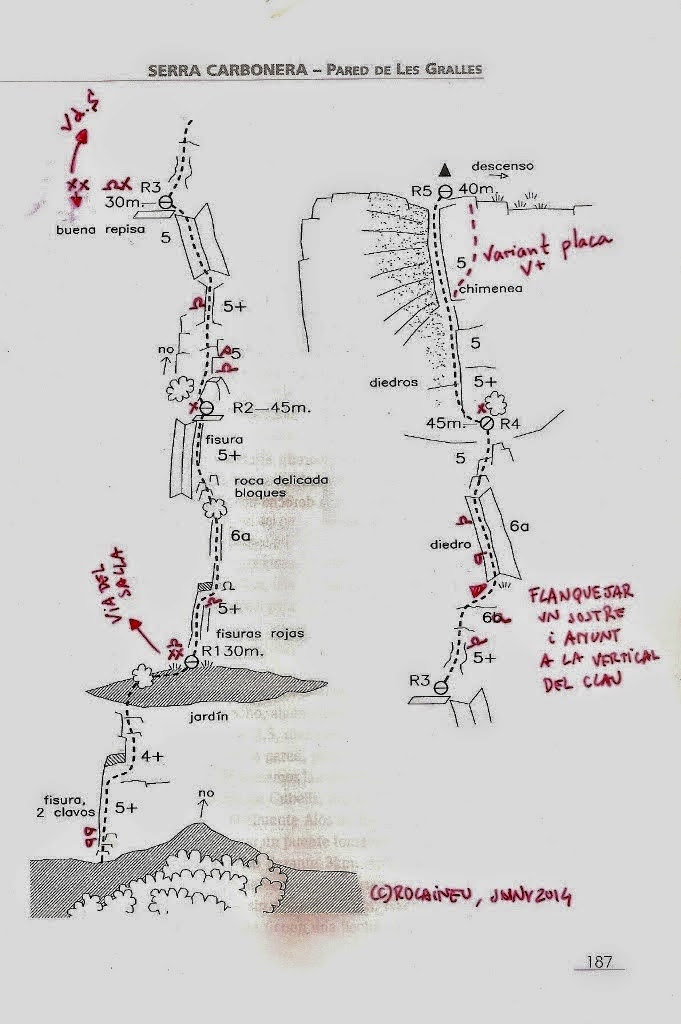 SERRA CARBONERA – PARED DE LES GRALLES
Vd.S
R3
30m.
buena repisa
5
5+
no
5
R2–45m.
fisura
5+
roca delicada
bloques
6a
VIA DEL
SALLA
5+
fisuras rojas
R1 30m.
jardín
4+
fisura,
2 clavos
5+
no
descenso
R5
40m.
5
Variant placa
V+
chimenea
5
diedros
5+
45m.
R4
5
6a
diedro
6b
5+
R3
FLANQUEJAR
UN SOSTRE
i AMUNT
A LA VERTICAL
DEL CLAU
(C)ROCAINEU, JANV 2014
187